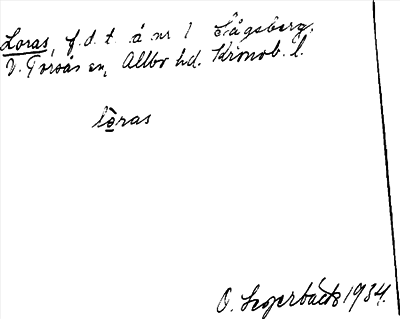 Loras, f.d.t. å nr 1 Lågsberg,
V. Torsås sn, Allbo hd. Kronob. l.
lo̱ras
O. Segerbäck 1934.